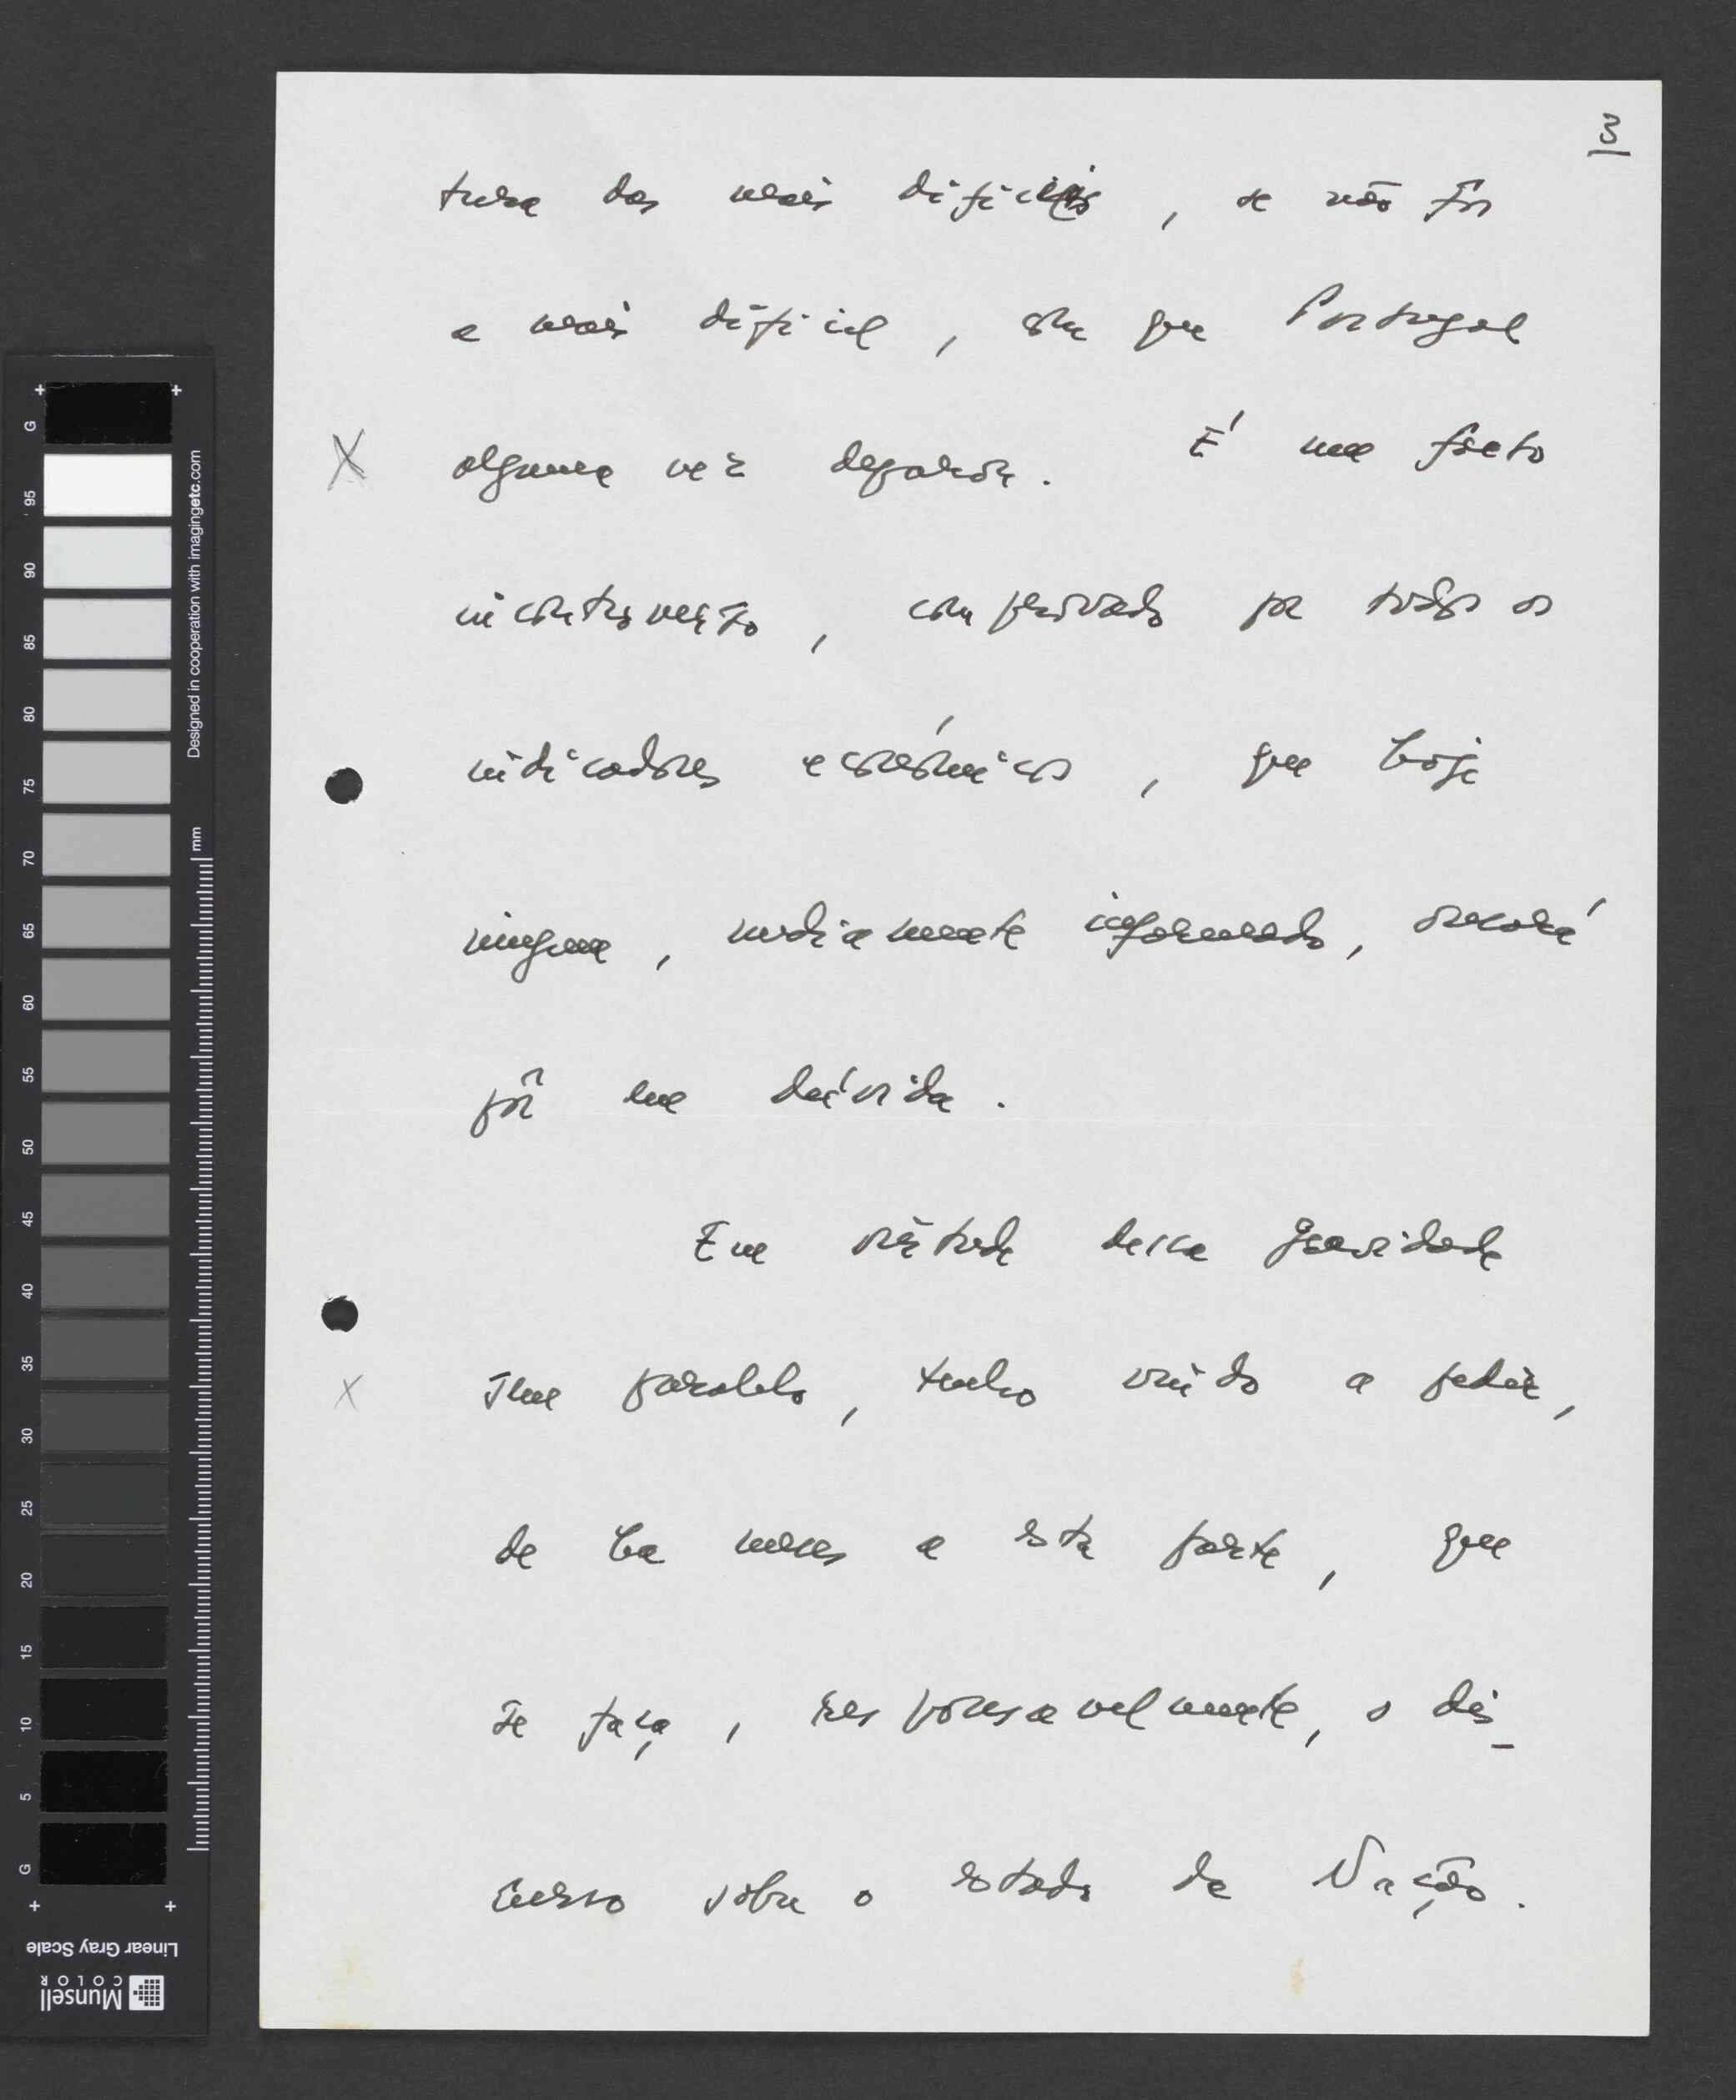 3
tura das mais difíceis, se não fôr
a mais difícil, com que Portugal
X alguma vez deparou. É um facto
incontroverso, comprovado por todos os
indicadores económicos, que hoje
ninguém, medianamente informado, ousará
pôr em dúvida.
Em virtude dessa gravidade
X sem paralelo, tenho vindo a pedir,
de há meses a esta parte, que
se faça, responsavelmente, o dis-
curso sobre o estado da Nação.
G
95
90
85
80
75
70
65
60
55
50
45
40
35
30
25
20
15
10
5
G
mm
Designed in cooperation with imagingetc.com
Linear Gray Scale
Munsell
COLOR